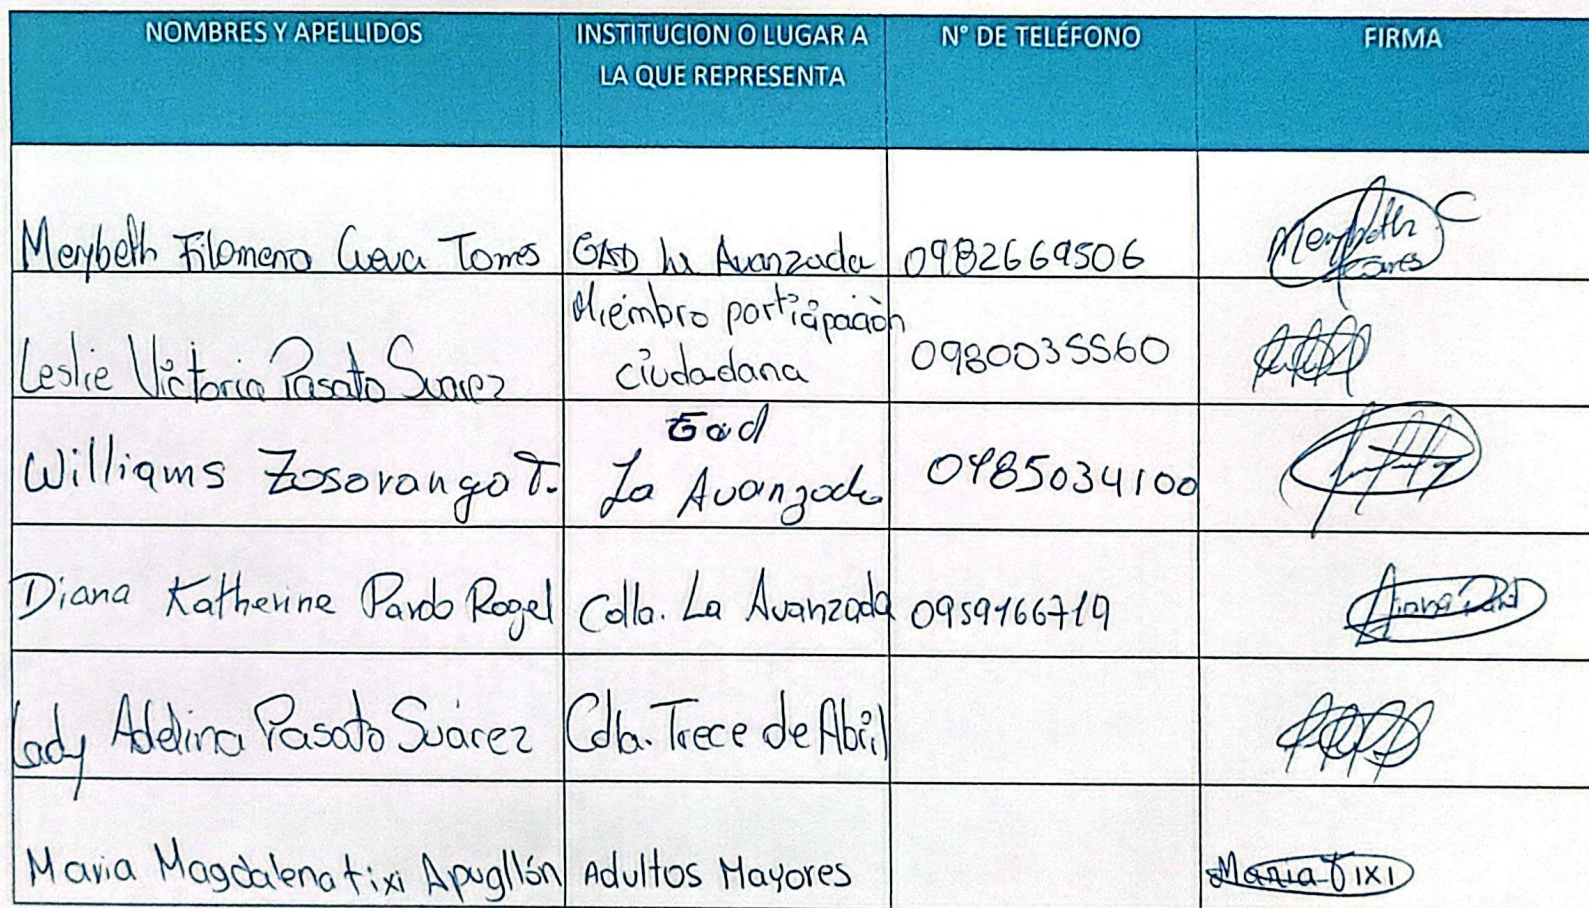 NOMBRES Y APELLIDOS
INSTITUCION O LUGAR A
LA QUE REPRESENTA
N° DE TELÉFONO
FIRMA
Merybeth Filomena Cueva Torres
GAD La Avanzada
0982669506
Merybeth C
Torres
Leslie Victoria Pasato Suarez
Miembro participación
ciudadana
0980035560
Williams Zosoranga T.
Gad
La Avanzada
0985034100
Diana Katherine Pardo Rogel
Cdla. La Avanzada
0959166719
Diana Pard
Lady Adelina Pasato Suárez
Cdla. Trece de Abril
Maria Magdalena tixi Apugllón
Adultos Mayores
Maria Tixi